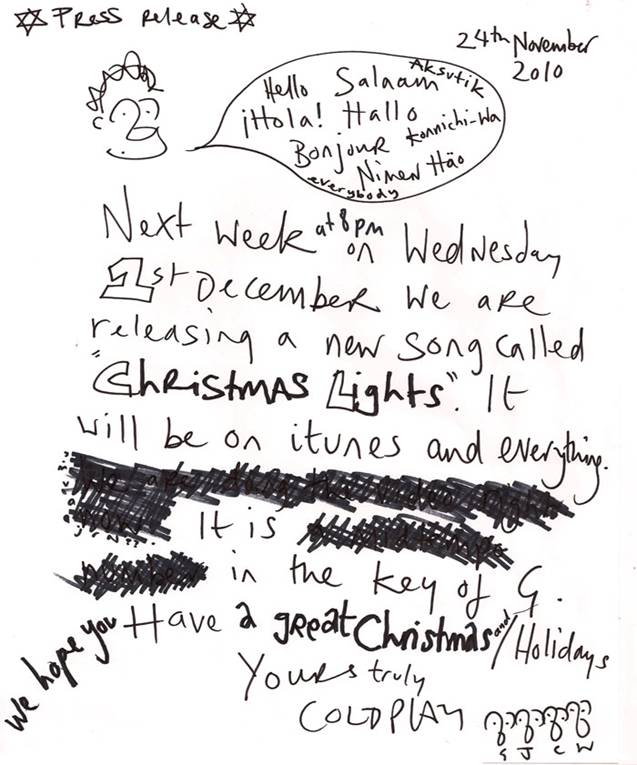 Press release
24th November
2010
Hello Salaam Aksutik
¡Hola! Hallo
Bonjour Konnichi-wa
Nimen Hāo
everybody
Next week at 8pm on Wednesday
1st December we are
releasing a new song called
"Christmas Lights". It
will be on itunes and everything.
We are doing the video right
now. It is a midtempo
number in the key of G.
We hope you Have a great Christmas and/Holidays
Yours truly
COLDPLAY
G J C W